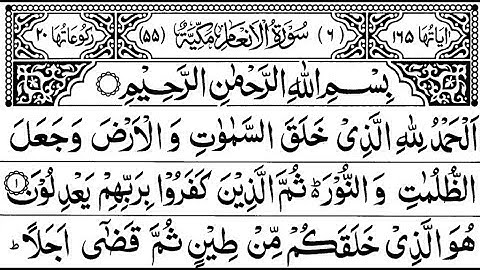 اٰیَاتُهَا ۱۶۵ (۶) سُوْرَةُ الْاَنْعَامِ مَكِّیَّةٌ (۵۵) رُكُوْعَاتُهَا ۲۰
بِسْمِ اللهِ الرَّحْمٰنِ الرَّحِیْمِ
اَلْحَمْدُ لِلّٰهِ الَّذِیْ خَلَقَ السَّمٰوٰتِ وَ الْاَرْضَ وَ جَعَلَ
الظُّلُمٰتِ وَ النُّوْرَ ؕ ثُمَّ الَّذِیْنَ كَفَرُوْا بِرَبِّهِمْ یَعْدِلُوْنَ ۝۱
هُوَ الَّذِیْ خَلَقَكُمْ مِّنْ طِیْنٍ ثُمَّ قَضٰۤی اَجَلًا ؕ